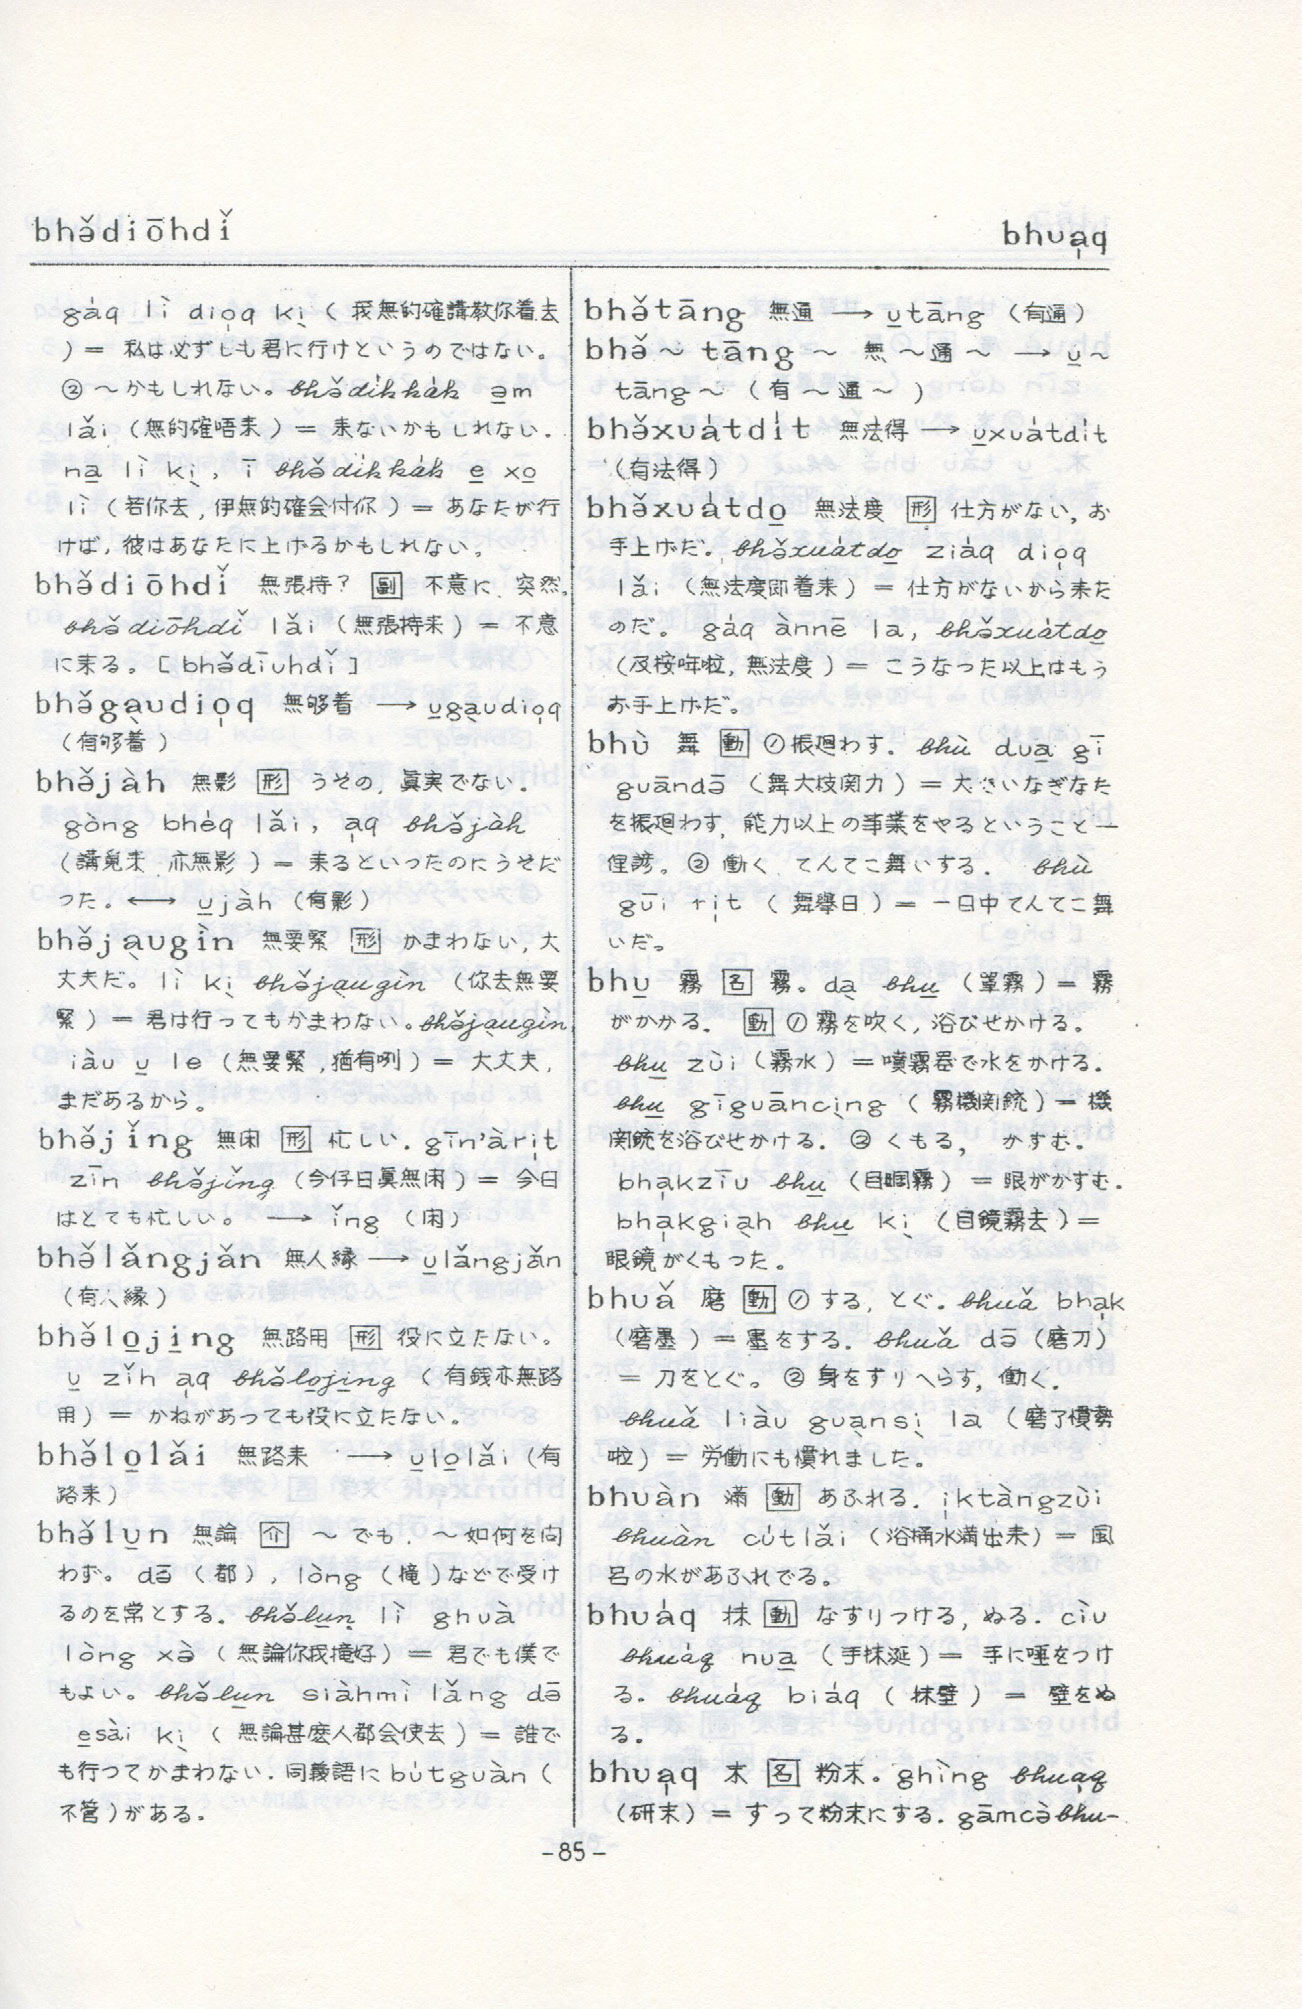 bhə̌diōhdǐ
bhuа̣q
gáq lì diọq kị ( 我無的確講教你着去
) = 私は必ずしも君に行けというのではない。
② ～かもしれない。bhə̌díkkák ə̱m
lǎi (無的確唔来) = 来ないかもしれない.
na̱ lì kị, ī bhə̌díkkák e̱ xo̱
lì (若你去, 伊無的確会付你) = あなたが行
けば, 彼はあなたに上げるかもしれない。
bhə̌diōhdǐ 無張持? 副 不意に, 突然,
bhə̌diōhdǐ lǎi (無張持来) = 不意
に来る。[bhə̌dīuhdǐ]
bhə̌gạudiọq 無够着 ⟶ u̱gạudiọq
(有够着)
bhə̌jàh 無影 形 うその, 眞実でない.
gòng bhéq lǎi, ạq bhə̌jàh
(講覓来 亦無影) = 来るといったのにうそだ
った。⟷ u̱jàh (有影)
bhə̌jạugìn 無要緊 形 かまわない, 大
丈夫だ。lì kị bhə̌jạugìn (你去無要
緊) = 君は行ってもかまわない。bhə̌jạugìn,
iàu u̱ le (無要緊, 猶有咧) = 大丈夫,
まだあるから。
bhə̌jǐng 無闲 形 忙しい. gīn'àrịt
zīn bhə̌jǐng (今仔日眞無闲) = 今日
はとても忙しい。 ⟶ ǐng (闲)
bhə̌lǎngjǎn 無人縁 ⟶ u̱lǎngjǎn
(有人縁)
bhə̌lo̱ji̱ng 無路用 形 役に立たない。
u̱ zǐh ạq bhə̌lo̱ji̱ng ( 有銭亦無路
用) = かねがあっても役に立たない。
bhə̌lo̱lǎi 無路来 ⟶ u̱lo̱lǎi (有
路来)
bhə̌lu̱n 無論 介 ～でも. ～如何を问
わず。 də̄ (都), lòng (掩)などで受け
るのを常とする. bhə̌lu̱n lì ghuà
lòng xə̀ (無論你我掩好) = 君でも僕で
もよい。bhə̌lu̱n siàhmì lǎng də̄
e̱sài kị ( 無論甚麼人都会使去) = 誰で
も行ってかまわない. 同義語に bútguàn (
不管)がある。
bhə̌tāng 無通 ⟶ u̱tāng (有通)
bhə̌ ～ tāng ～ 無 ～ 通 ～ ⟶ u̱ ～
tāng ～ (有 ～ 通 ～ )
bhə̌xuátdít 無法得 ⟶ u̱xuátdít
(有法得)
bhə̌xuátdo̱ 無法度 形 仕方がない, お
手上げだ。bhə̌xuátdo̱ ziáq diọq
lǎi (無法度即着来) = 仕方がないから来た
のだ。 gáq ànnē la, bhə̌xuátdo̱
(及按哖啦, 無法度) = こうなった以上はもう
お手上げだ。
bhù 舞 動 ① 振廻わす. bhù dua̱ gī
guāndə̄ (舞大枝関力) = 大きいなぎなた
を振廻わす, 能力以上の事業をやるということ —
俚諺。② 働く てんてこ舞いする. bhù
gūi rịt ( 舞擧日) = 一日中てんてこ舞
いだ。
bhu̱ 霧 名 霧。dạ bhu̱ (罩霧) = 霧
がかかる. 動 ① 霧を吹く, 浴びせかける。
bhu̱ zùi (霧水) = 噴霧器で水をかける.
bhu̱ gīguāncịng ( 霧機関銃) = 機
関銃を浴びせかける. ② くもる, かすむ。
bhạkzīu bhu̱ (目睭霧) = 眼がかすむ.
bhạkgiạh bhu̱ kị (目鏡霧去) =
眼鏡がくもった。
bhuǎ 磨 動 ① する, とぐ。bhuǎ bhạk
(磨墨) = 墨をする. bhuǎ də̄ (磨刀)
= 刀をとぐ。② 身をすりへらす, 働く.
bhuǎ liàu guạnsị la (磨了慣勢
啦) = 労働にも慣れました。
bhuàn 滿 動 あふれる. ịktàngzùi
bhuàn cútlǎi (浴桶水滿出来) = 風
呂の水があふれでる。
bhuáq 抹 動 なすりつける, ぬる. cìu
bhuáq nua̱ (手抹涎) = 手に唾をつけ
る. bhuáq biáq ( 抹壁) = 壁をぬ
る。
bhuạq 末 名 粉末。ghìng bhuạq
(研末) = すって粉末にする. gāmcə̀bhu-
-85-